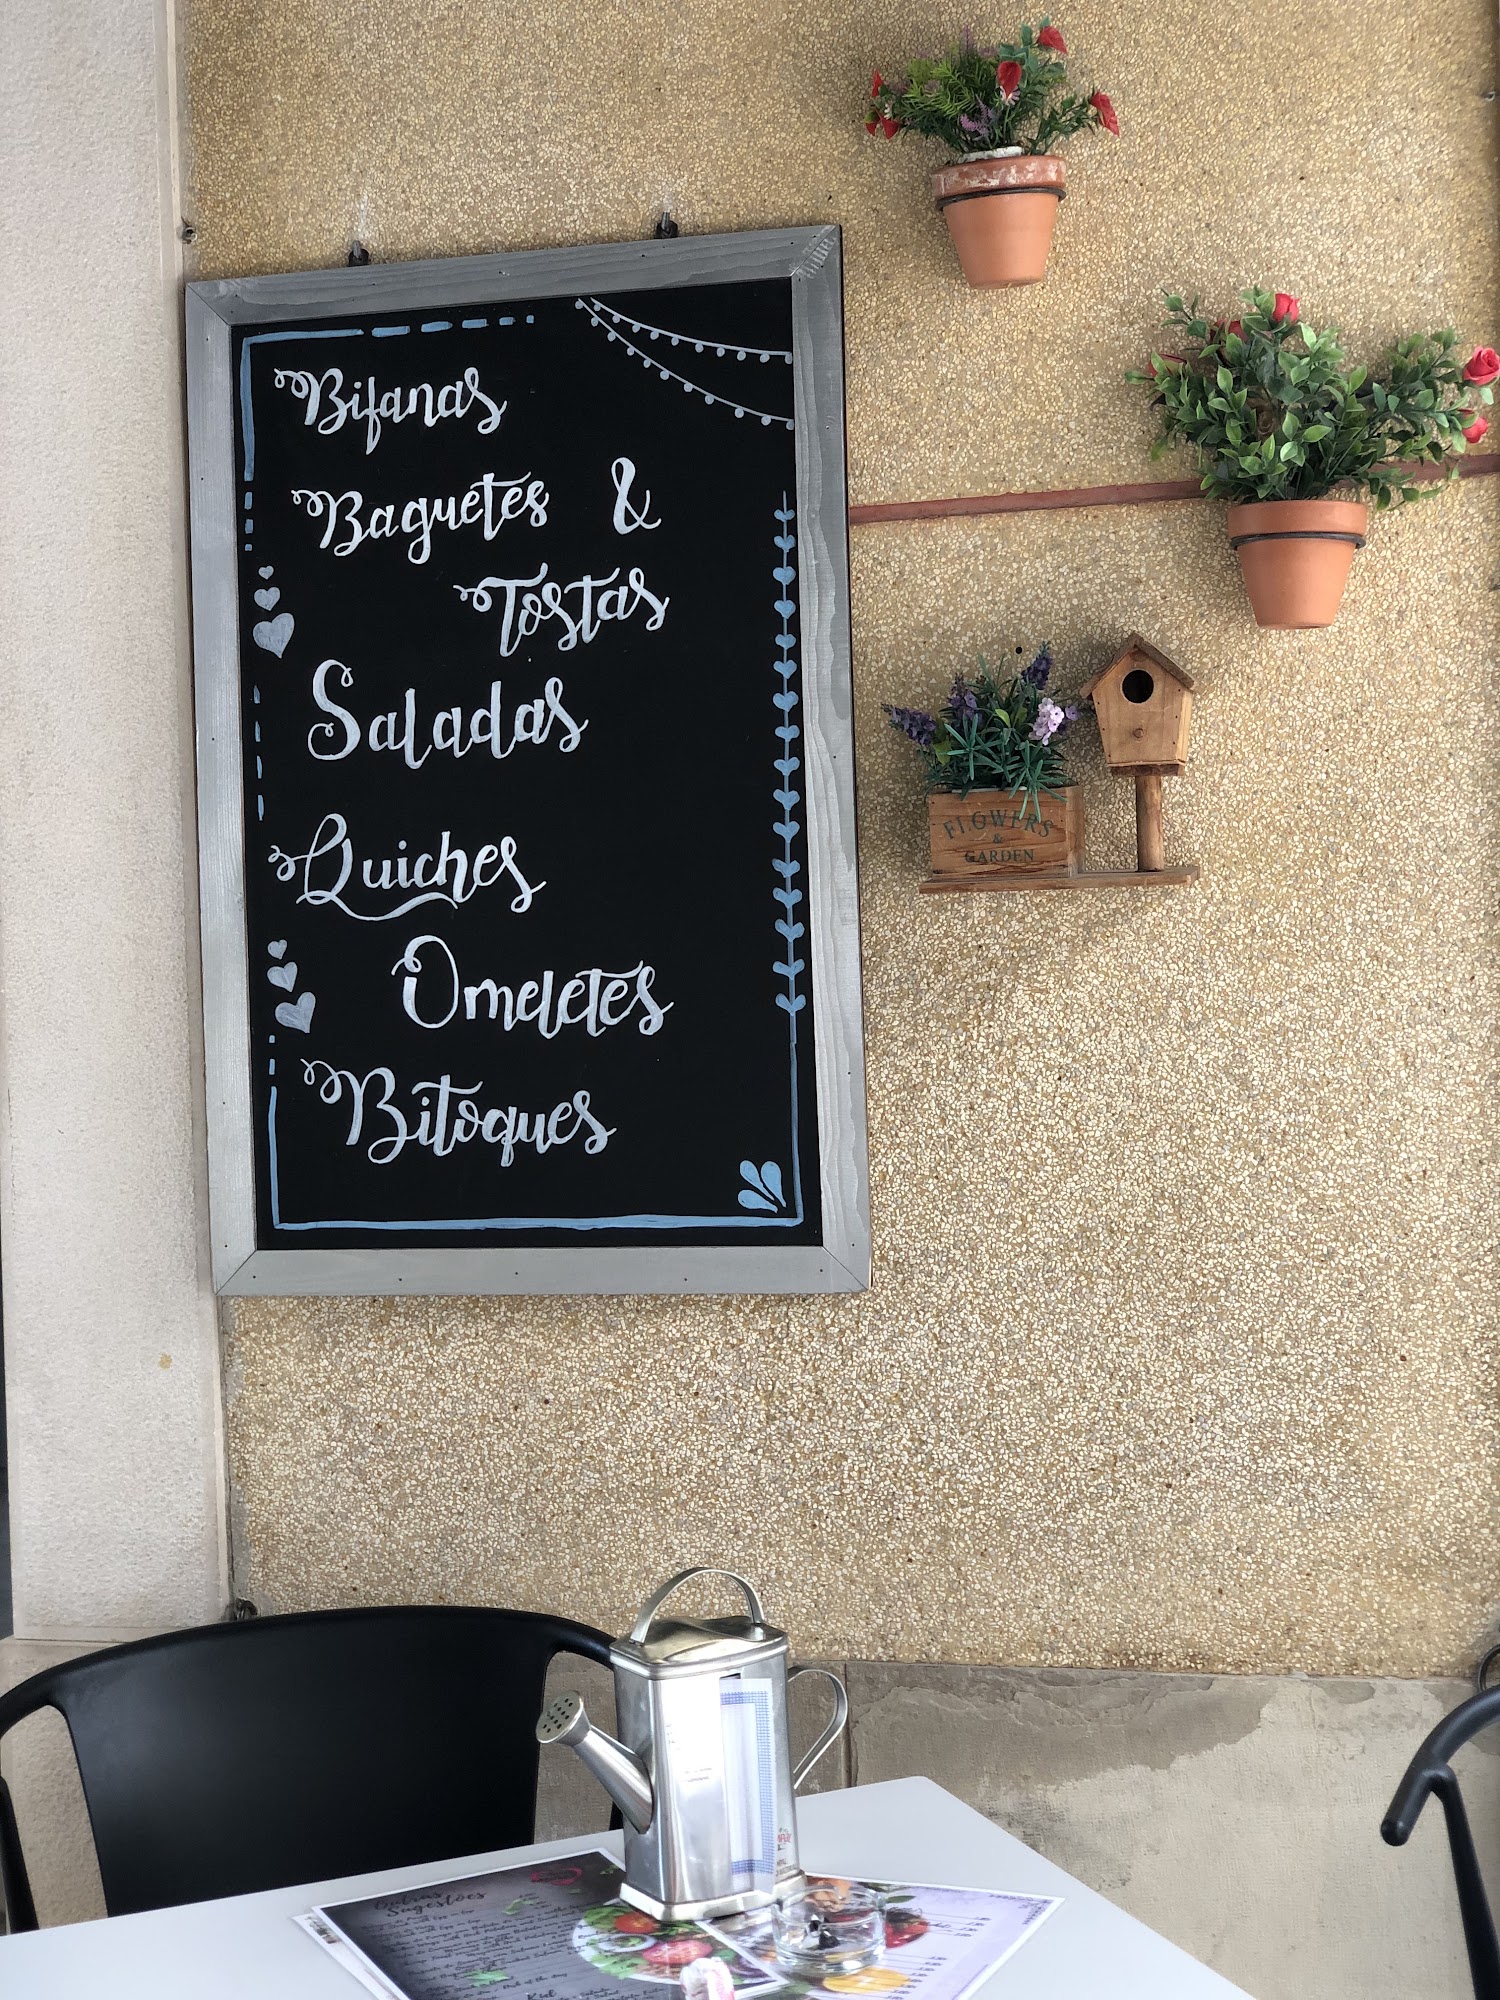 Bifanas
Baguetes &
Tostas
Saladas
Quiches
Omeletes
Bitoques
FLOWERS
&
GARDEN
Outras
Sugestões